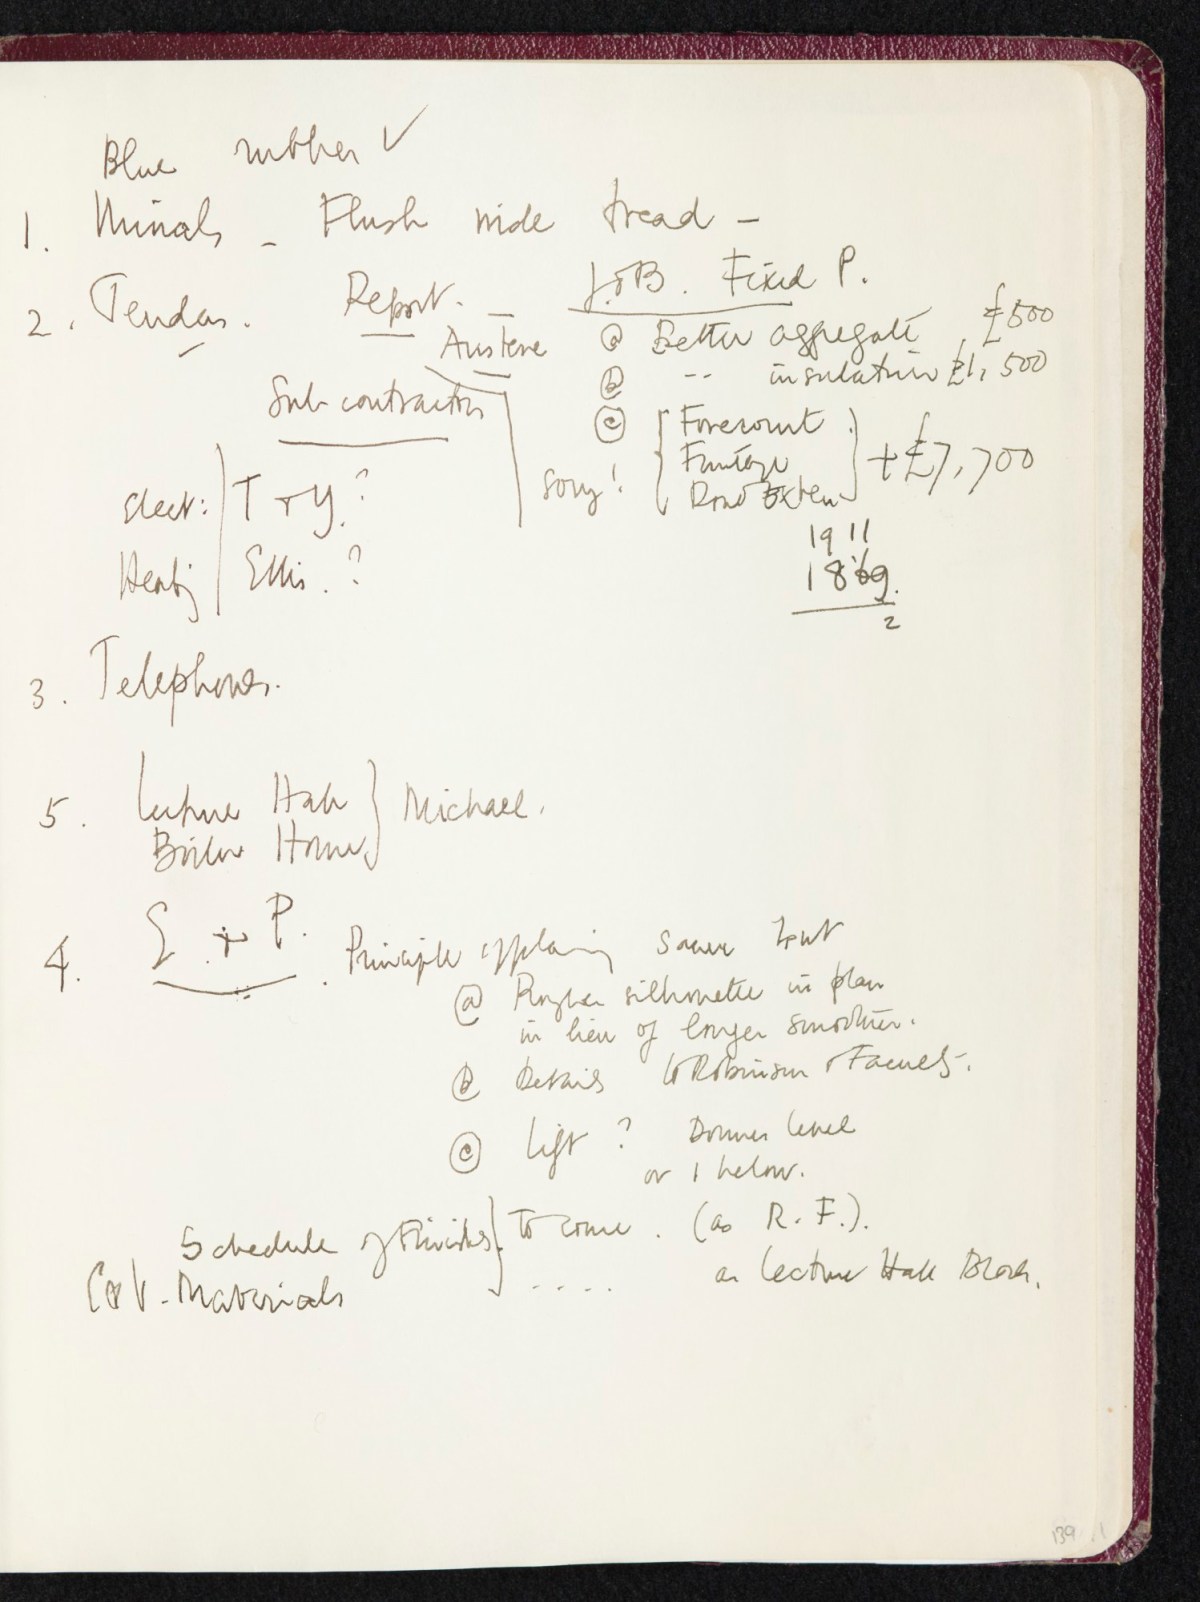 Blue rubber ✓
1. Urinals - Flush wide tread -
2. Tenders. Report. - J. & B. Fixed P.
Austere
(a) Better aggregate £500
(b) -- insulation £1,500
Sub-contractors
(c) { Forecourt
Frontage
Road Exten } + £7,700
Sorry!
Elect: T + Y. ?
Heatg Ellis. ?
1911
1869.
2
3. Telephones.
5. Lecture Hall
Boiler House } Michael.
4. E + P. Principle explaining same but
(a) Rougher silhouette in plan
in lieu of longer smoother.
(b) Details to Robinson & Faculty.
(c) Lift ? Donner level
or 1 below.
Schedule of Finishes } to come. (as R. F.).
Materials .... as Lecture Hall Block.
139